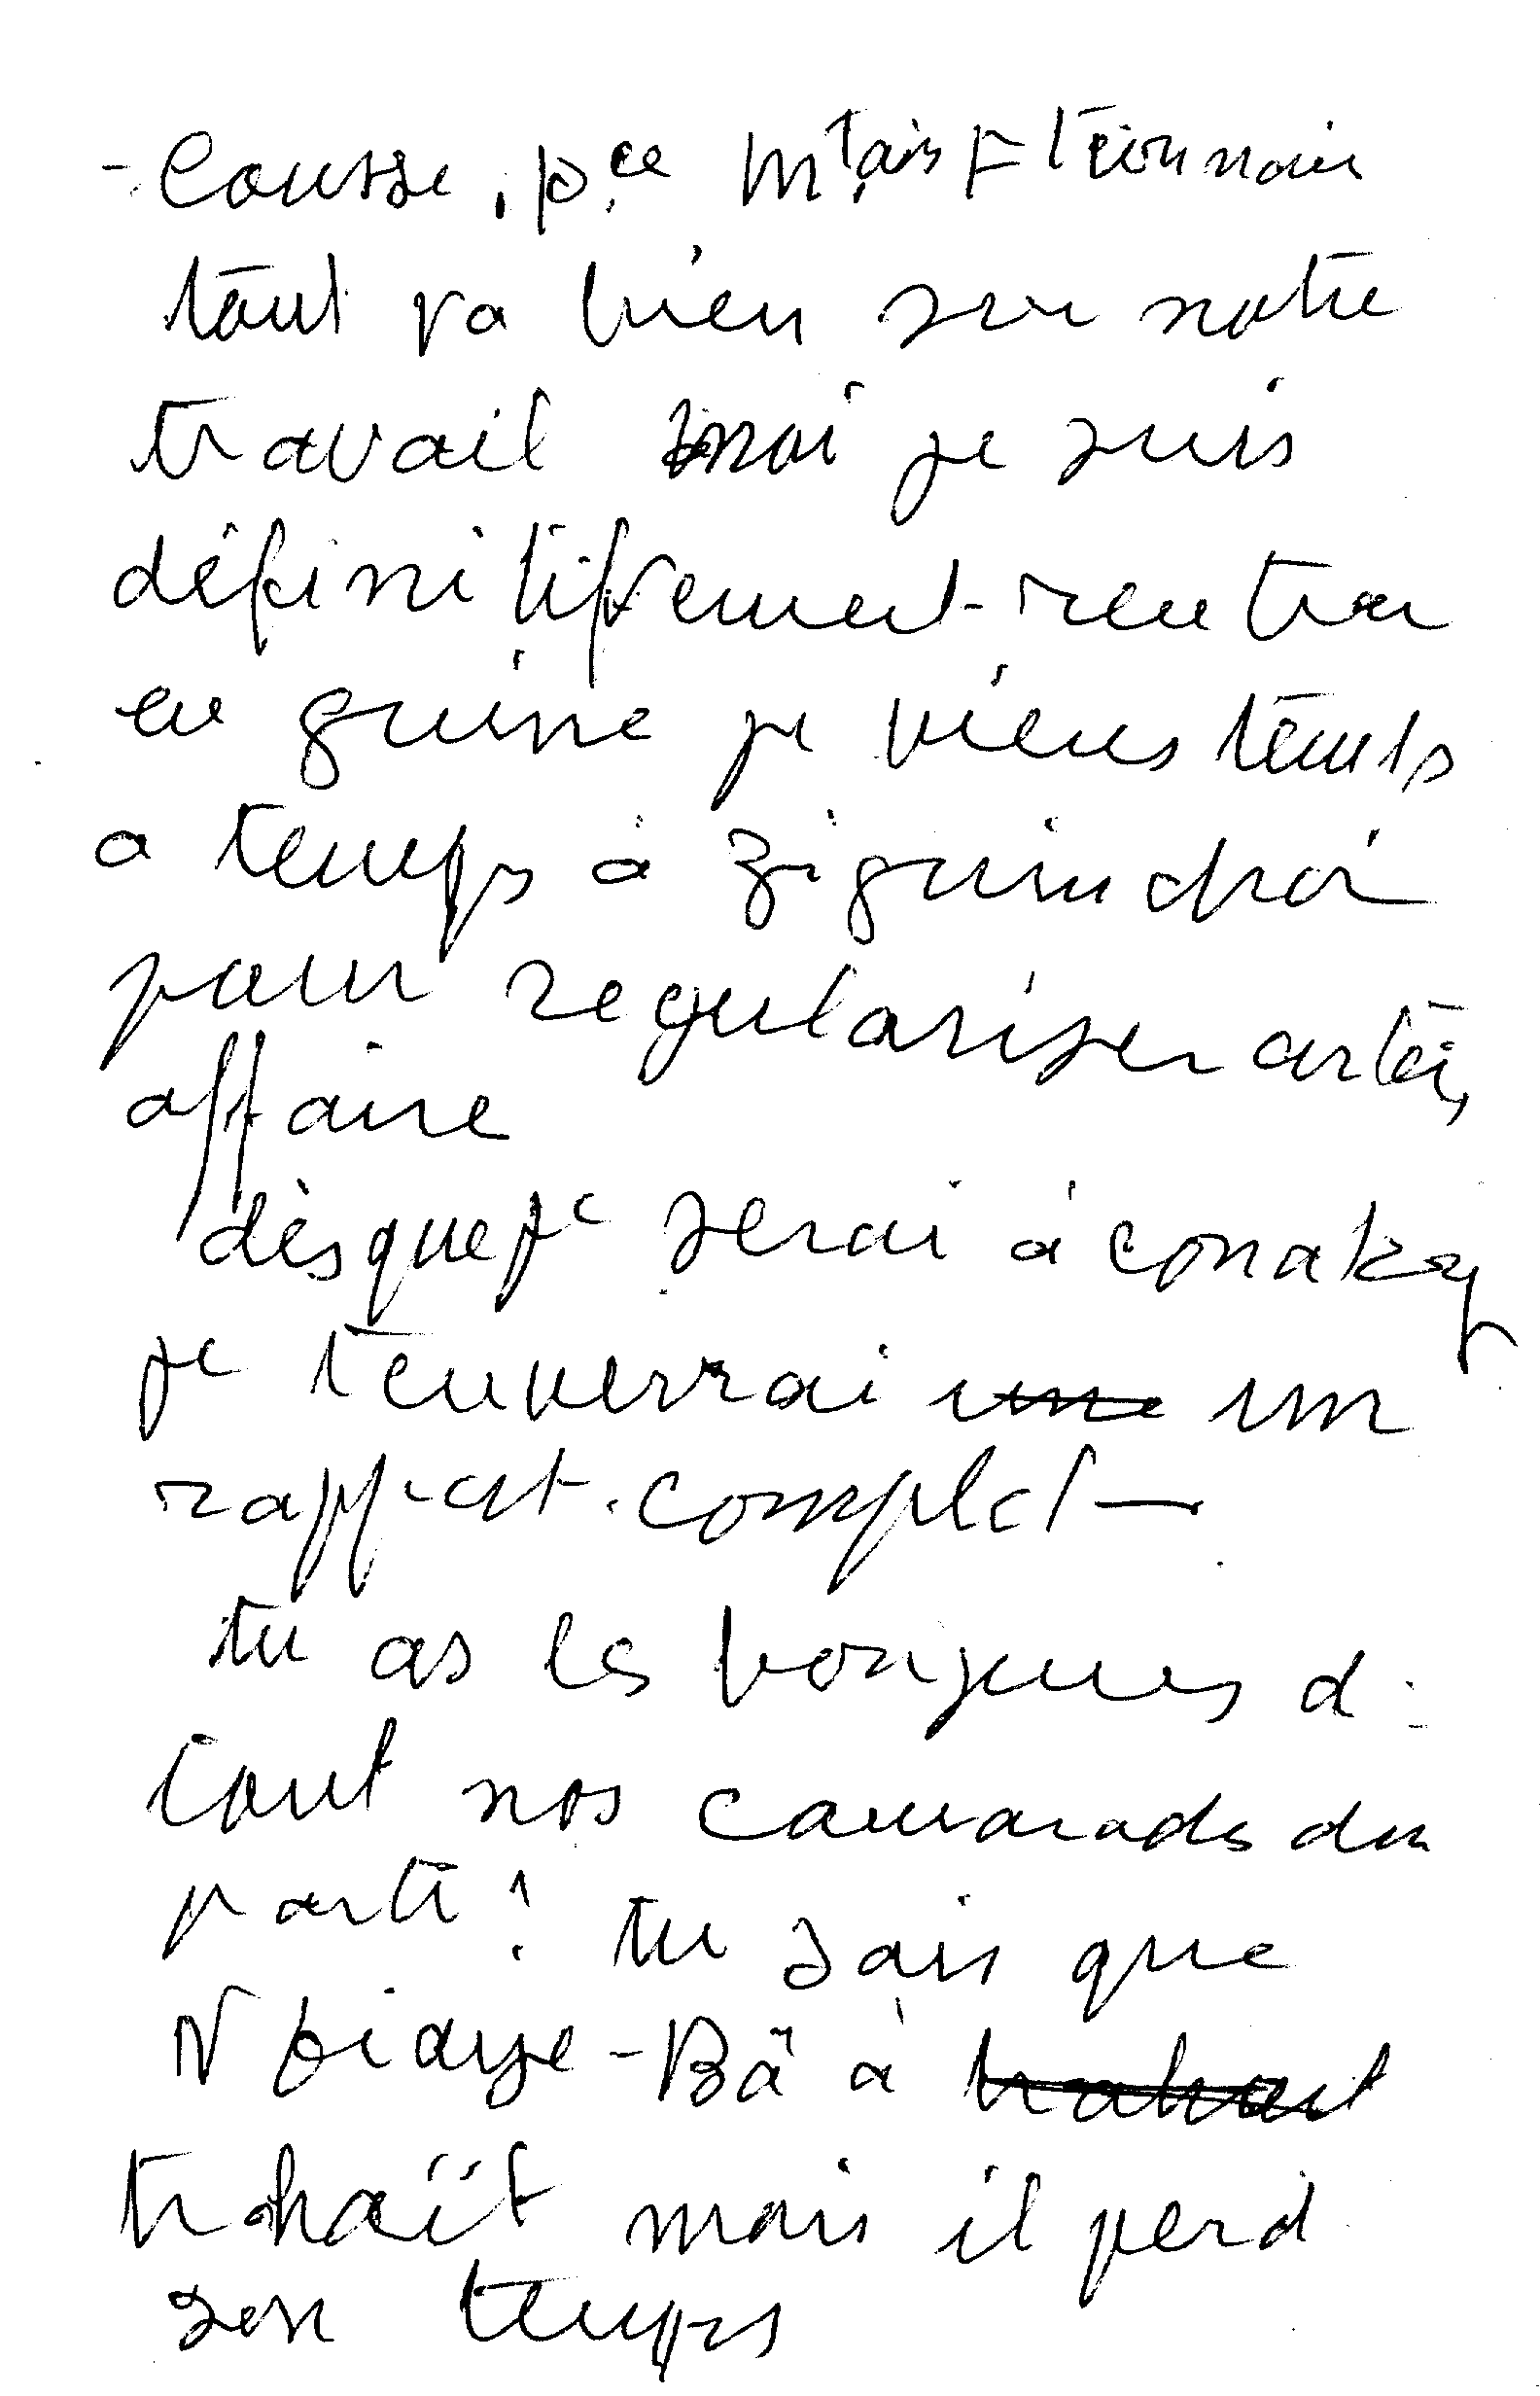 tout va bien sur notre
travail moi je suis
définitifvement rentrer
en guine je viens temps
a temps à ziguinchor
pour regulariser
affaire
dèsque je serai à conakry
je tenverrai une un
rapport complet —
tu as les bonjeures d
tout nos camarads du
parti! tu sais que
Ndiaye-Bâ à
trahaït mais il perd
son temps